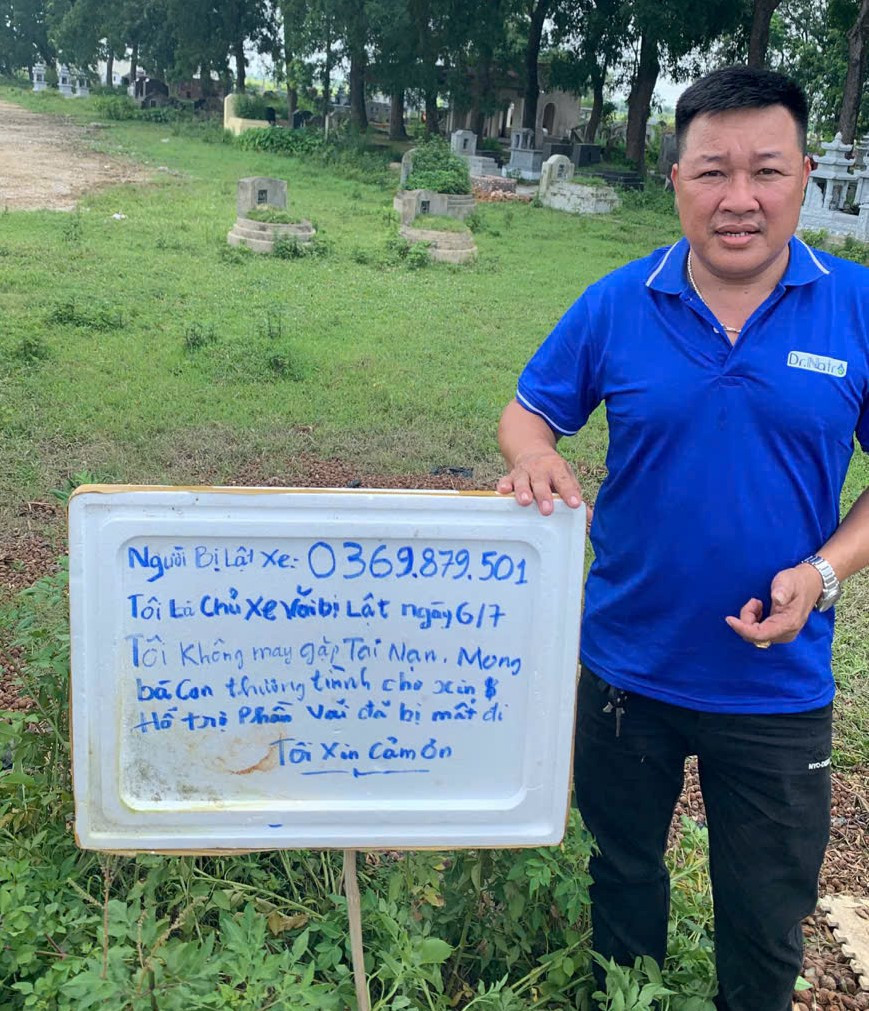 Người Bị Lật Xe: 0369.879.501
Tôi Là Chủ Xe Vải bị Lật ngày 6/7
Tôi Không may gặp Tai Nạn. Mong
bà Con thương tình cho xin $
Hỗ trợ Phần Vải đã bị mất đi
Tôi Xin Cảm ơn
Dr.Natro